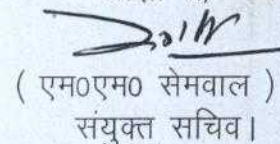 ( एम0एम0 सेमवाल )
संयुक्त सचिव।